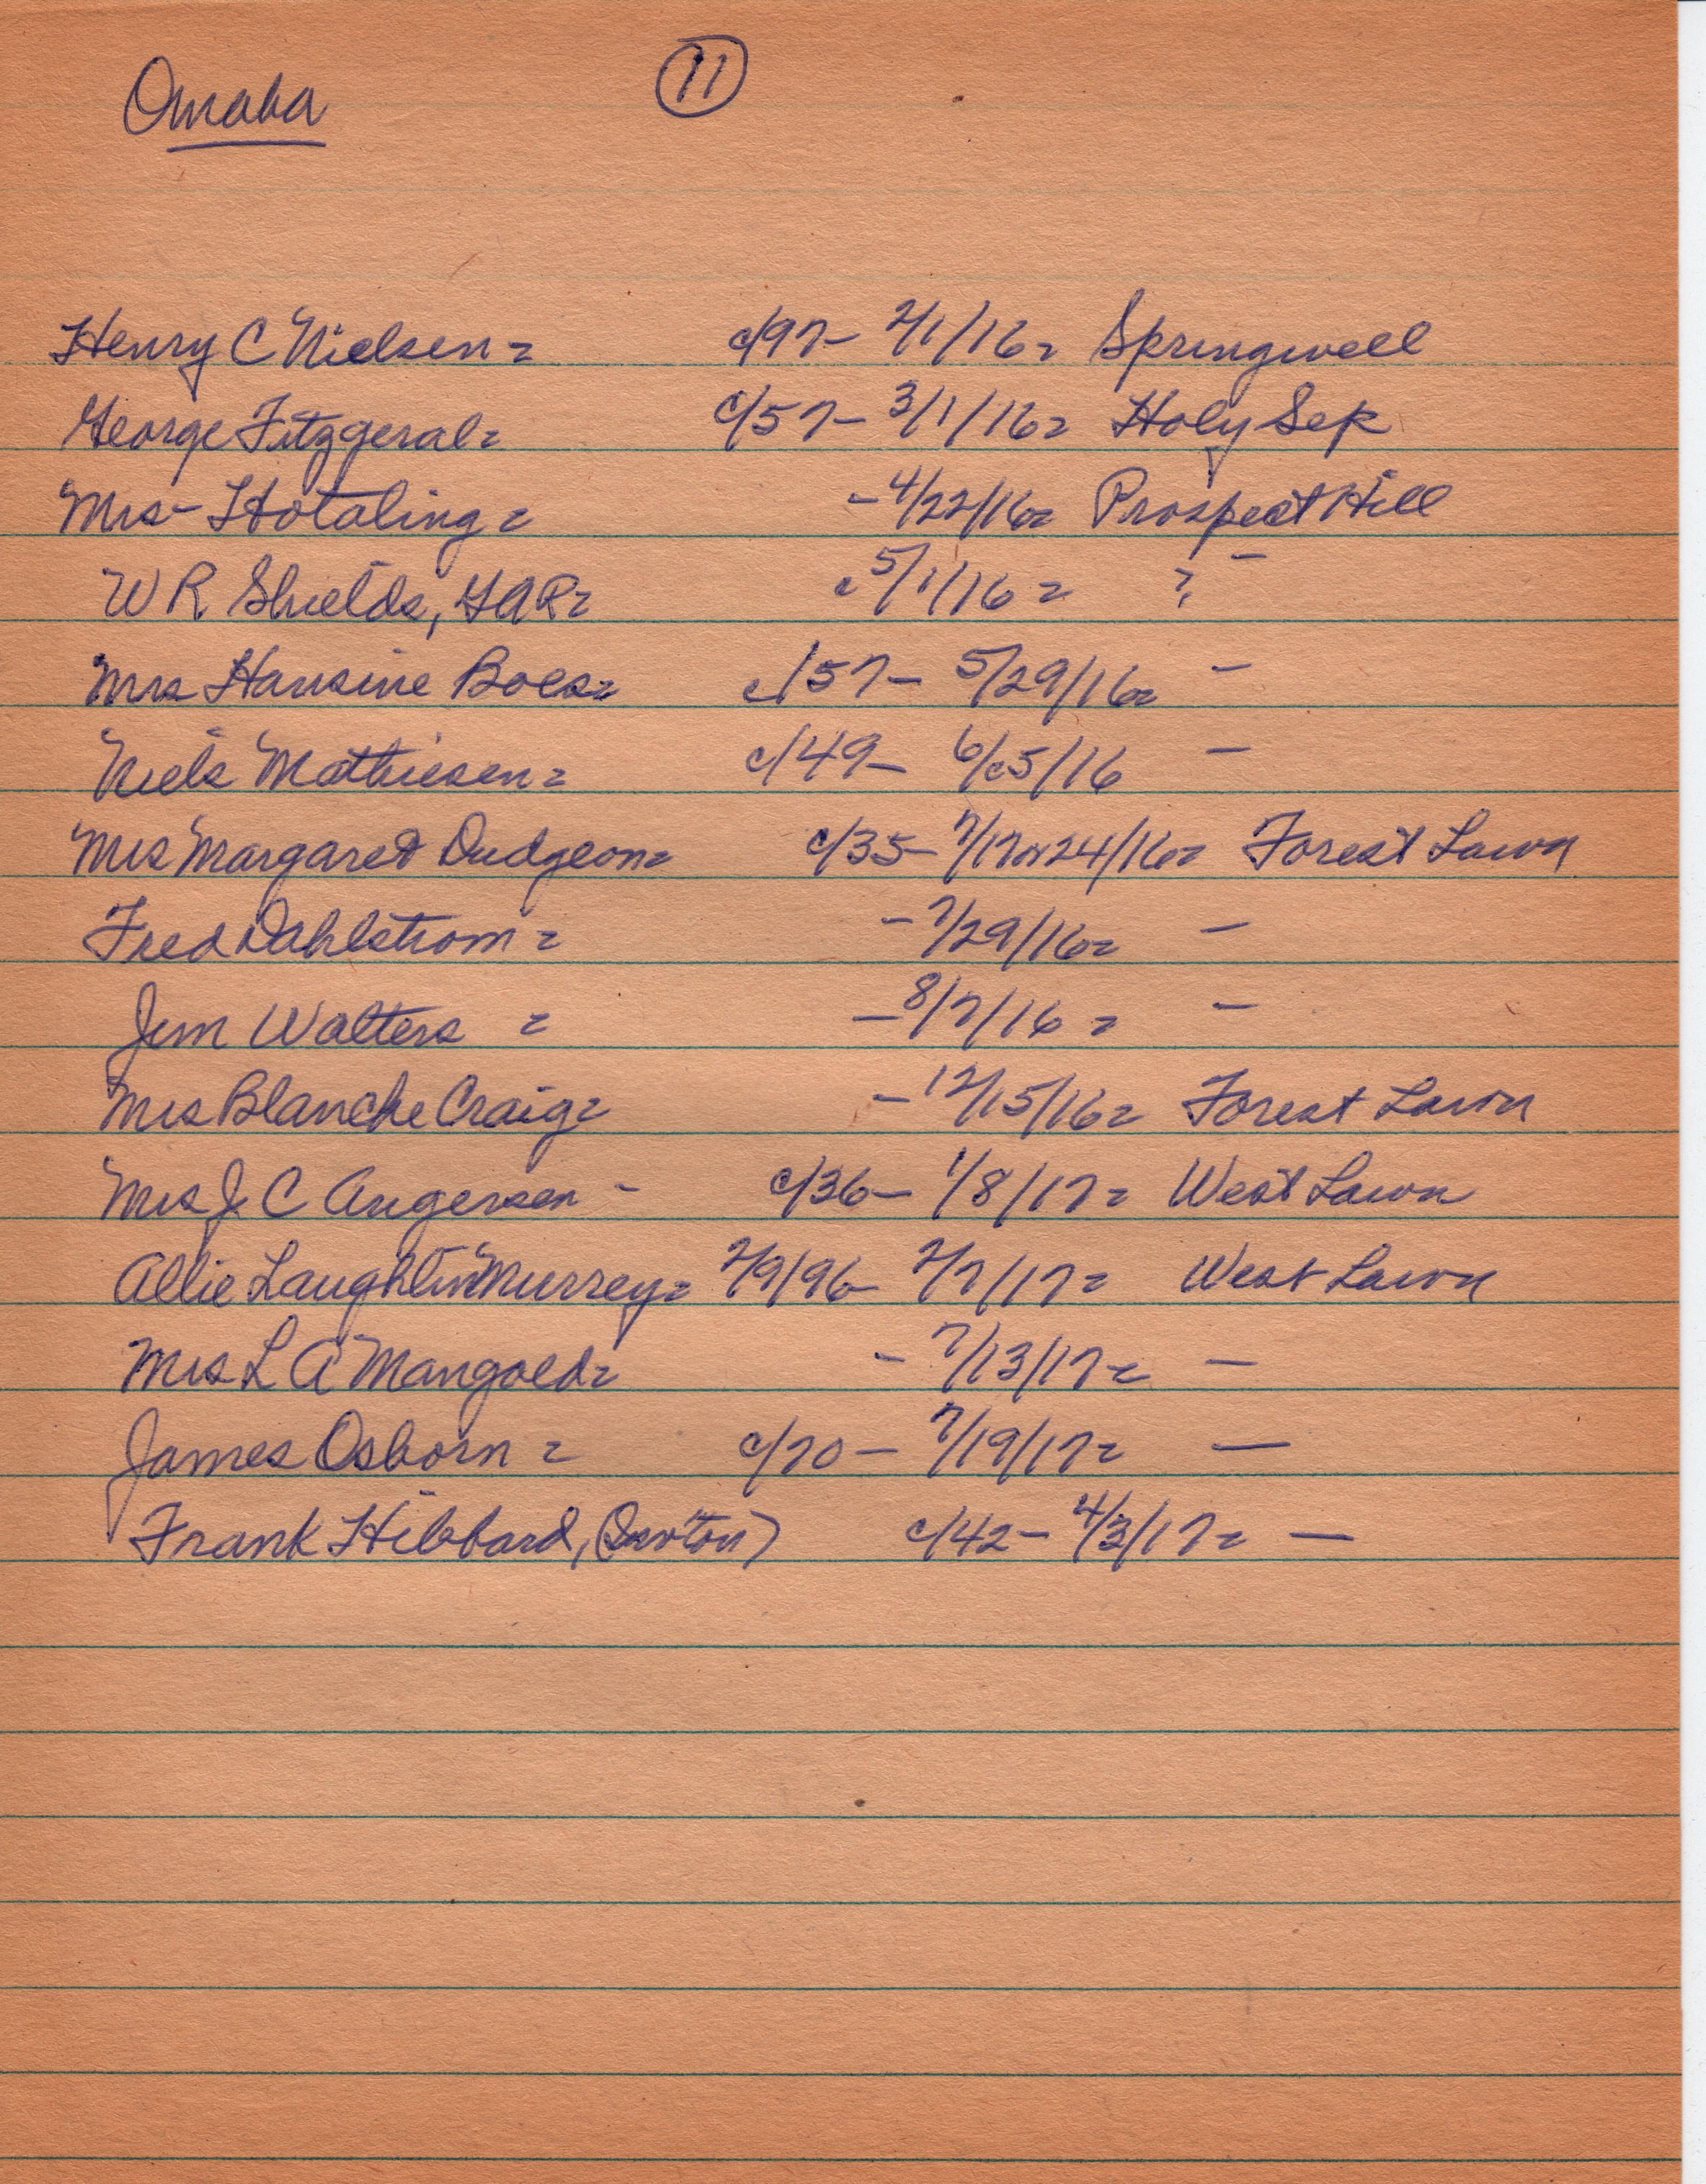 Omaha
11
Henry C Nielsen = c/97- 2/1/16= Springwell
George Fitzgeral= c/57- 3/1/16= Holy Sep
Mrs- Hotaling = - 4/22/16= Prospect Hill
W R Shields, GAR= c 5/1/16 = ? -
Mrs Hansine Boes= c/57- 5/29/16= -
Niels Mathiesen = c/49- 6/c5/16 -
Mrs Margaret Dudgeon= c/35- 7/17or24/16= Forest Lawn
Fred Dahlstrom = - 7/29/16= -
Jim Walters = - 8/7/16 = -
Mrs Blanche Craig= - 12/15/16= Forest Lawn
Mrs J. C Angersen - c/36- 1/8/17= West Lawn
Allie Laughlin Murrey= 2/9/96- 2/7/17= West Lawn
Mrs L A Mangold= - 7/13/17= -
James Osborn = c/70- 7/19/17= -
Frank Hibbard, c/42- 4/3/17= -